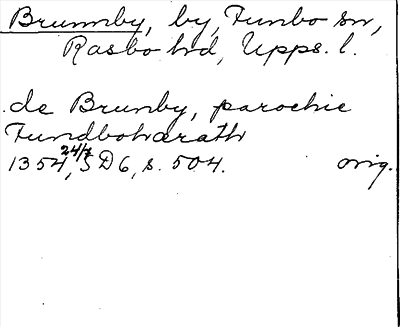 Brunnby, by, Funbo sn,
Rasbo hd, Upps. l.
de Brunby, parochie
Fundbohærath
1354 24/7, SD 6, s. 504. orig.